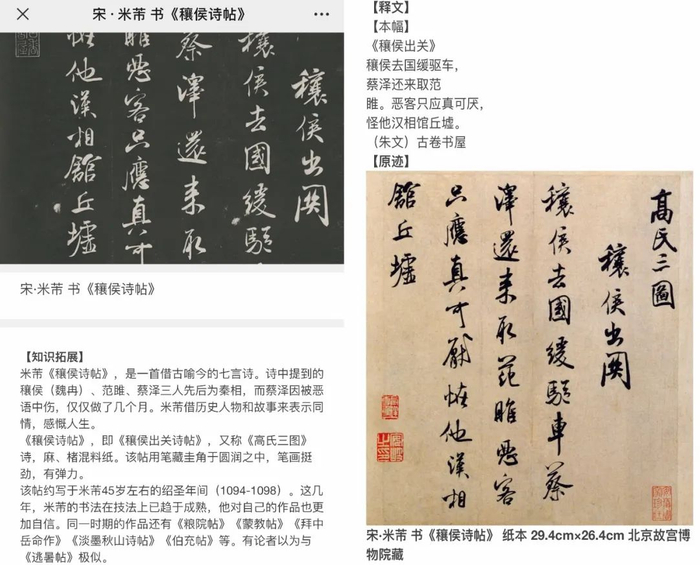 宋·米芾 书《穰侯诗帖》
穰侯出関
穰侯去國緩駈
蔡澤還来取
睢惡客只應真可
恠他漢相舘丘墟
宋·米芾 书《穰侯诗帖》
【知识拓展】
米芾《穰侯诗帖》，是一首借古喻今的七言诗。诗中提到的
穰侯（魏冉）、范雎、蔡泽三人先后为秦相，而蔡泽因被恶
语中伤，仅仅做了几个月。米芾借历史人物和故事来表示同
情，感慨人生。
《穰侯诗帖》，即《穰侯出关诗帖》，又称《高氏三图》
诗，麻、楮混料纸。该帖用笔藏圭角于圆润之中，笔画挺
劲，有弹力。
该帖约写于米芾45岁左右的绍圣年间（1094-1098）。这几
年，米芾的书法在技法上已趋于成熟，他对自己的作品也更
加自信。同一时期的作品还有《粮院帖》《蒙教帖》《拜中
岳命作》《淡墨秋山诗帖》《伯充帖》等。有论者以为与
《逃暑帖》极似。
【释文】
【本幅】
《穰侯出关》
穰侯去国缓驱车，
蔡泽还来取范
睢。恶客只应真可厌，
怪他汉相馆丘墟。
（朱文）古卷书屋
【原迹】
高氏三圖
穰侯出関
穰侯去國緩駈車蔡
澤還来取范睢惡客
只應真可厭恠他漢相
舘丘墟
宋·米芾 书《穰侯诗帖》 纸本 29.4cm×26.4cm 北京故宫博
物院藏